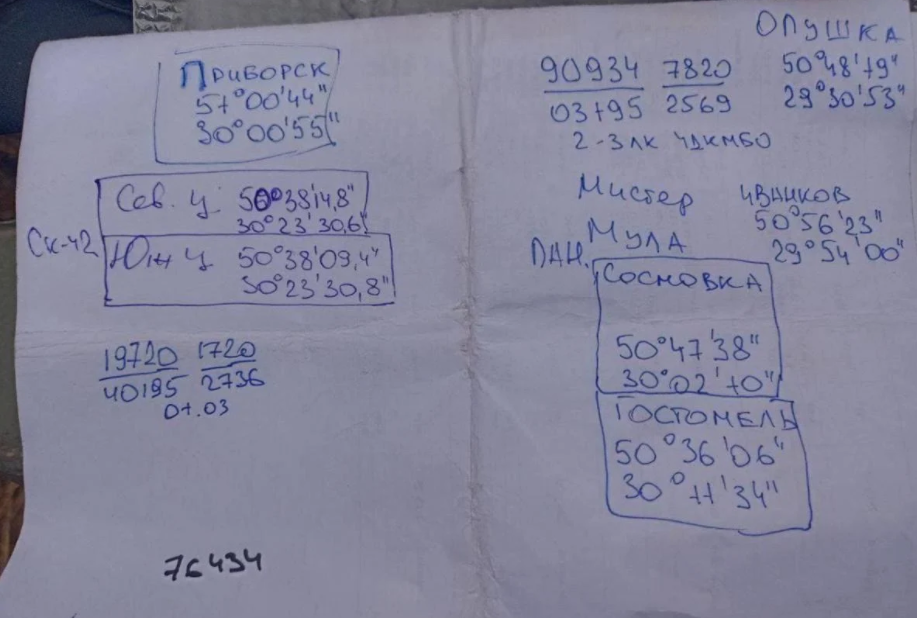 ПРИБОРСК
51°00'44"
30°00'55"
Сев. ц 50°38'14,8"
30°23'30,6"
СК-42
Южн ц 50°38'09,4"
30°23'30,8"
19720 1720
40195 2736
01.03
76434
ОПУШКА
50°48'19"
29°30'53"
90934 7820
03195 2569
2-3 ЛК
Мистер
ИВАНКОВ
50°56'23"
29°54'00"
МУЛА
ПАН.
СОСНОВКА
50°47'38"
30°02'10"
ГОСТОМЕЛЬ
50°36'06"
30°11'34"